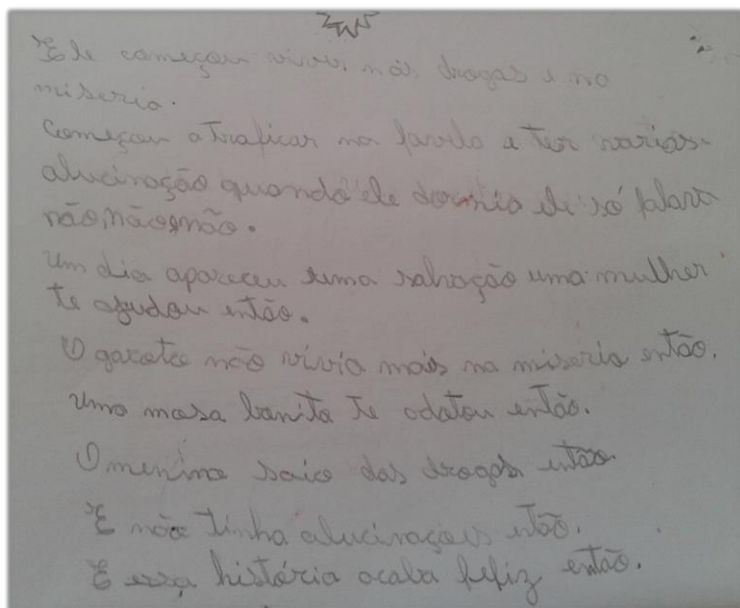 Ele começou viver nás drogas e no
miseria.
Começou a traficar na favela a ter varias
alucinação quando ele dormia ele só falava
não, não, não.
Um dia apareceu uma salvação uma mulher
te ajudou então.
O garoto não vivia mais na miseria então.
Uma mosa bonita te adatou então.
O menino saio das drogas então.
E não tinha alucinações então.
E essa história acaba feliz então.